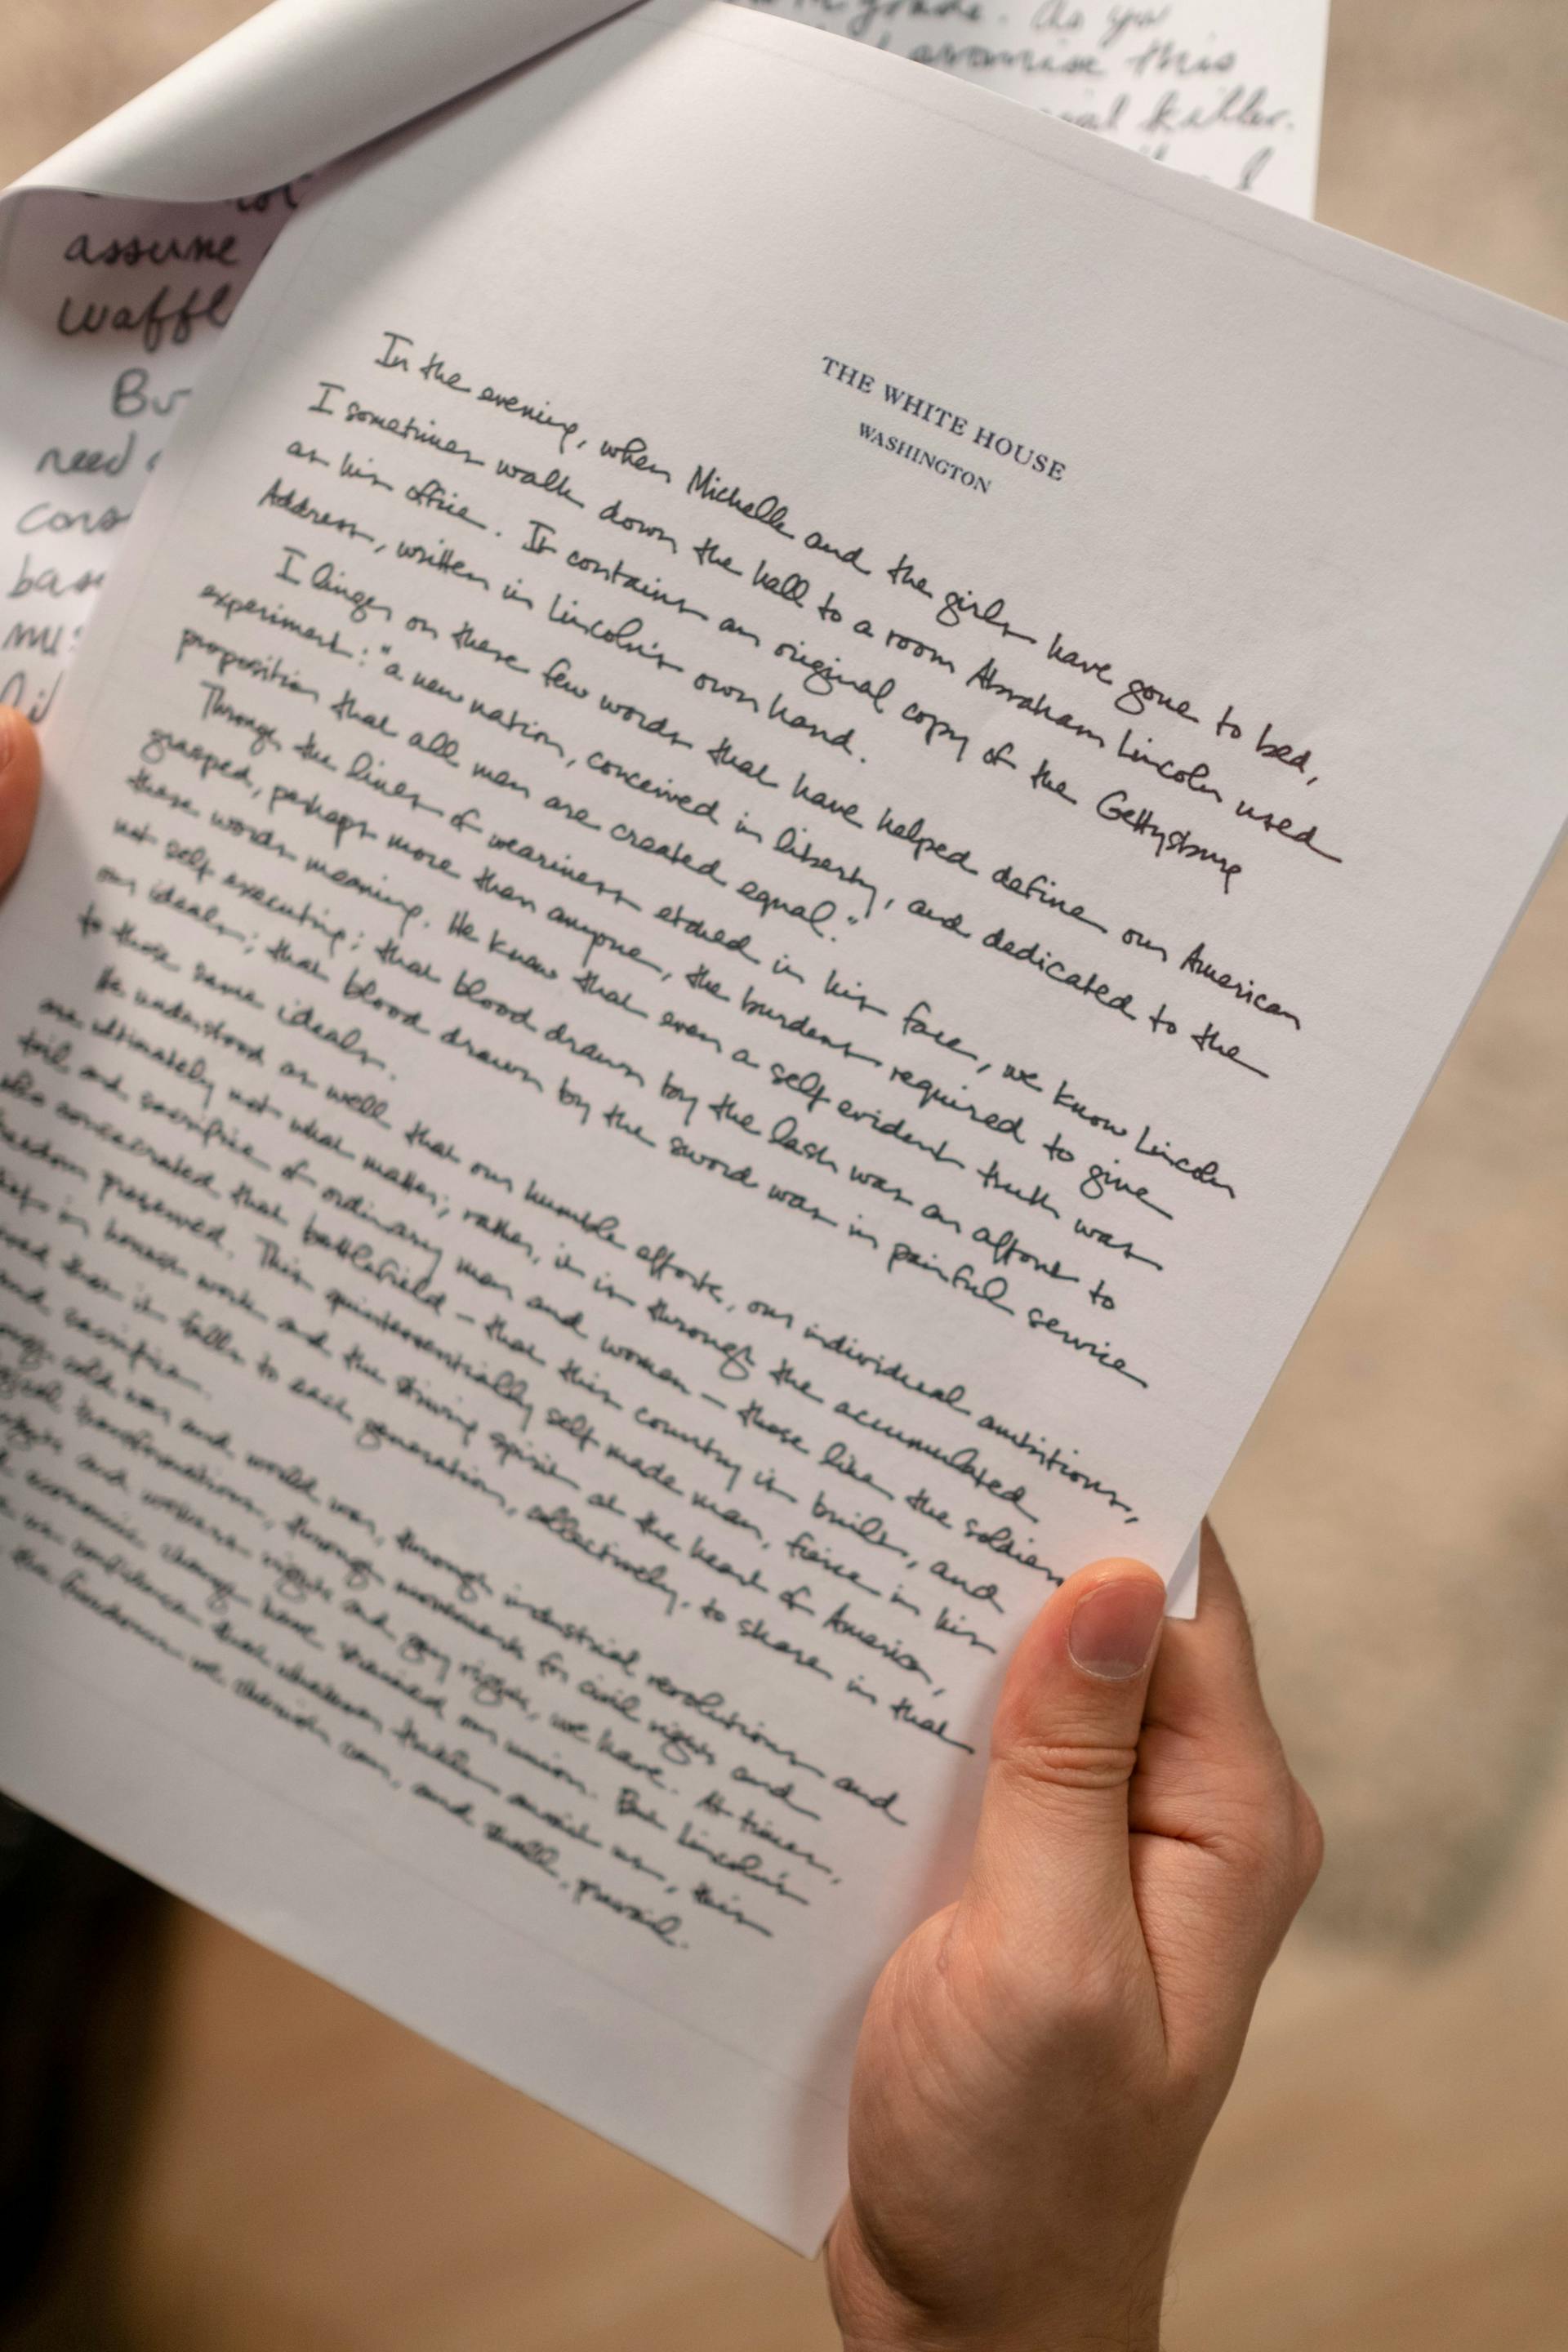 THE WHITE HOUSE
WASHINGTON
In the evening, when Michelle and the girls have gone to bed,
I sometimes walk down the hall to a room Abraham Lincoln used
as his office. It contains an original copy of the Gettysburg
Address, written in Lincoln's own hand.
I linger on these few words that have helped define our American
experiment: "a new nation, conceived in liberty, and dedicated to the
proposition that all men are created equal."
Through the lines of weariness etched in his face, we know Lincoln
grasped, perhaps more than anyone, the burdens required to give
these words meaning. He knew that even a self evident truth was
not self executing; that blood drawn by the lash was an affront to
our ideals; that blood drawn by the sword was in painful service
to those same ideals.
He understood as well that our humble efforts, our individual ambitions,
are ultimately not what matter; rather, it is through the accumulated
toil and sacrifice of ordinary men and women – those like the soldiers
who consecrated that battlefield – that this country is built, and
freedom preserved. This quintessentially self made man, fierce in his
in honest work and the striving spirit at the heart of America,
that it falls to each generation, collectively, to share in that
and sacrifice.
cold war and world war, through industrial revolutions and
transformations, through movements for civil rights and
and womens rights and gay rights, we have. At times,
economic change have strained our union. But Lincoln's
us confidence that whatever trials await us, this
the freedom we cherish can, and shall, prevail.
grade. As you
promise this
killer.
I
assume
need